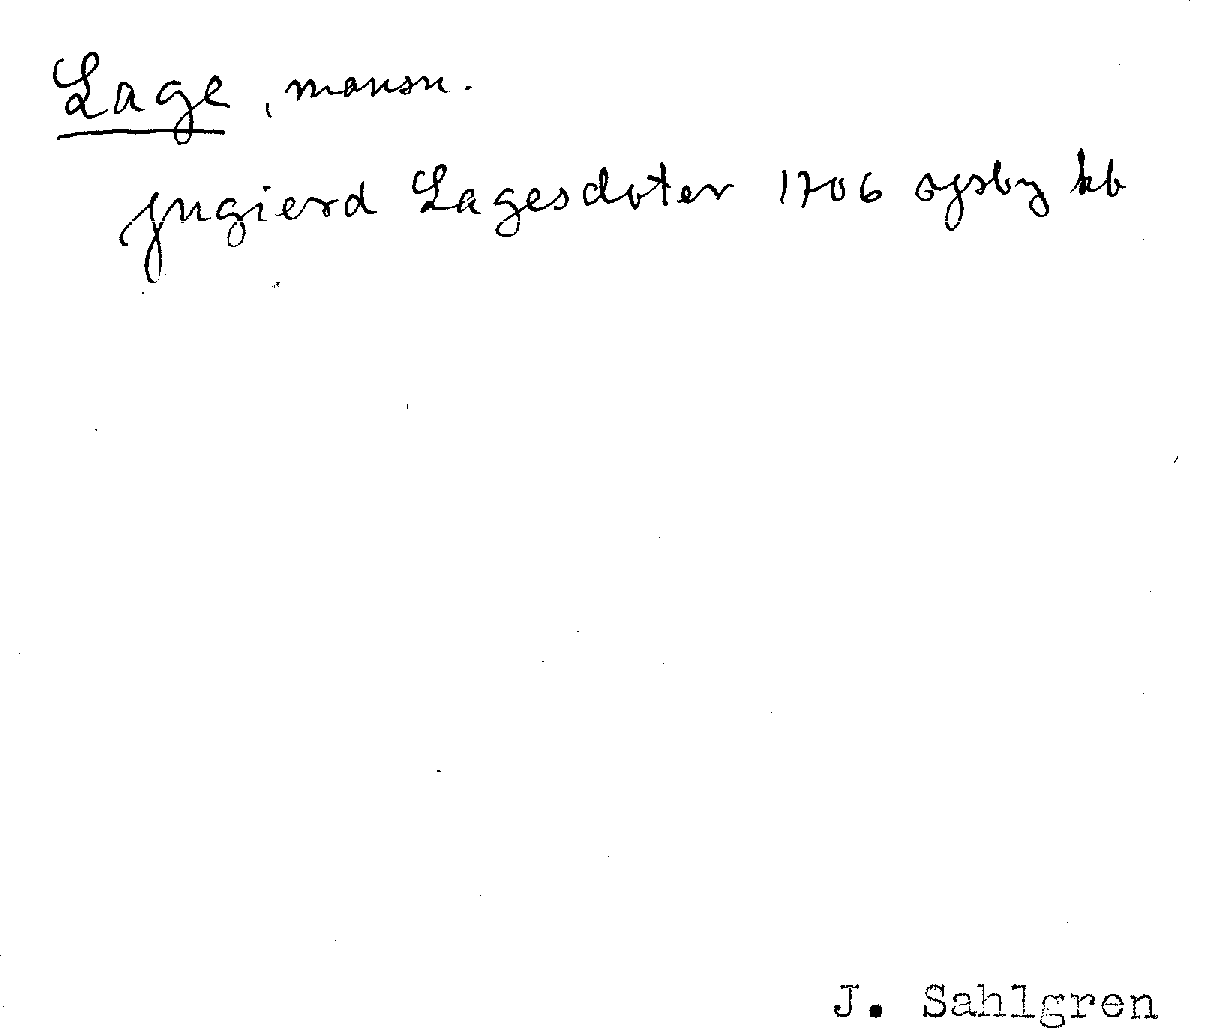 Lage, mansn.
Jngierd Lagesdoter 1706 Ogsby kb
J. Sahlgren